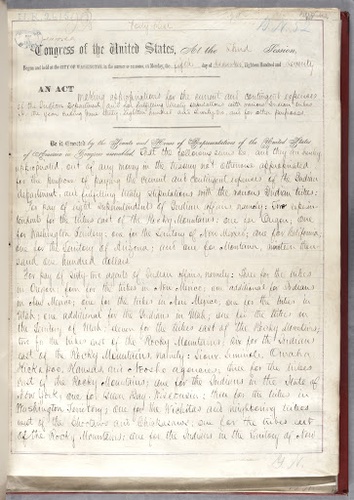 Forty-First
Congress of the United States, At the third Session,
Begun and held at the CITY OF WASHINGTON, in the District of Columbia, on Monday, the fifth day of December, Eighteen Hundred and seventy
AN ACT
Making appropriations for the current and contingent expenses
of the Indian Department, and for fulfilling treaty stipulations with various Indian tribes
for the year ending June thirty, eighteen hundred and seventy-two, and for other purposes.
Be it enacted by the Senate and House of Representatives of the United States
of America in Congress assembled, That the following sums be, and they are hereby,
appropriated, out of any money in the treasury not otherwise appropriated
for the purpose of paying the current and contingent expenses of the Indian
department, and fulfilling treaty stipulations with the various Indian tribes:
For pay of eight superintendents of Indian affairs, namely: Two superin-
tendents for the tribes east of the Rocky Mountains; one for Oregon; one
for Washington Territory; one for the Territory of New Mexico; one for California;
one for the Territory of Arizona; and one for Montana, nineteen thou-
sand one hundred dollars
For pay of sixty-two agents of Indian affairs, namely: Three for the tribes
in Oregon; four for the tribes in New Mexico; one additional for Indians
in New Mexico; one for the tribes in New Mexico; one for the tribes in
Utah; one additional for the Indians in Utah; one for the tribes in
the Territory of Utah; eleven for the tribes east of the Rocky Mountains;
two for the tribes east of the Rocky Mountains; for the Indians
east of the Rocky Mountains, namely: Sioux, Seminole, Omaha
Kickapoo, Kansas and Neosho agencies; three for the tribes
east of the Rocky Mountains; one for the Indians in the State of
New York; one for Green Bay, Wisconsin; three for the tribes in
Washington Territory; one for the Wichitas and neighboring tribes
west of the Choctaws and Chickasaws; one for the tribes east
of the Rocky Mountains; one for the Indians in the Territory of New